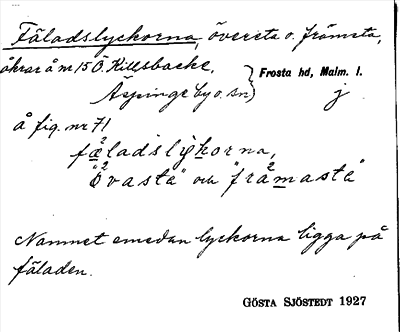 Fäladslyckorna, översta o. främsta,
åkrar å nr 15 Ö. Killsbacke,
Äspinge by o. sn) Frosta hd, Malm. l.
j
å fig. nr 71
fæladslykorna,
"övasta" och "främasta"
Namnet emedan lyckorna ligga på
fäladen.
GÖSTA SJÖSTEDT 1927